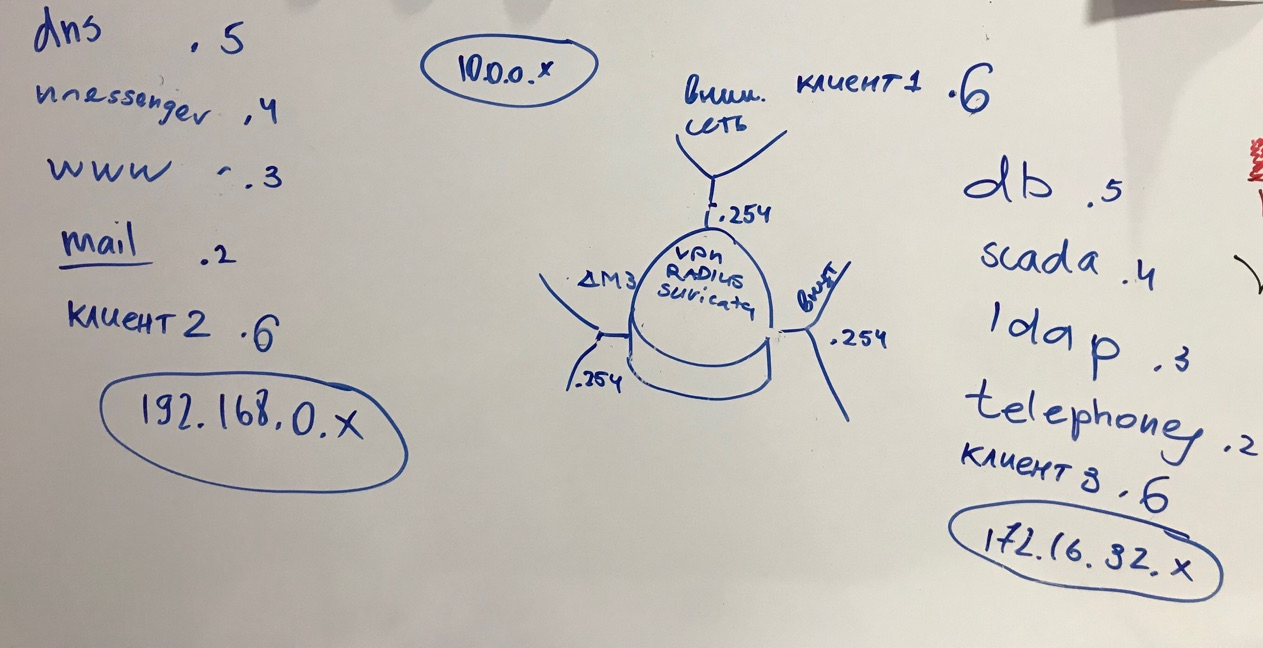 dns .5
messenger .4
www .3
mail .2
клиент 2 .6
192.168.0.x
10.0.0.x
внеш.
сеть
клиент 1 .6
.254
vpn
RADIUS
suricata
ДМЗ
.254
внут
.254
db .5
scada .4
ldap .3
telephony .2
клиент 3 .6
172.16.32.x